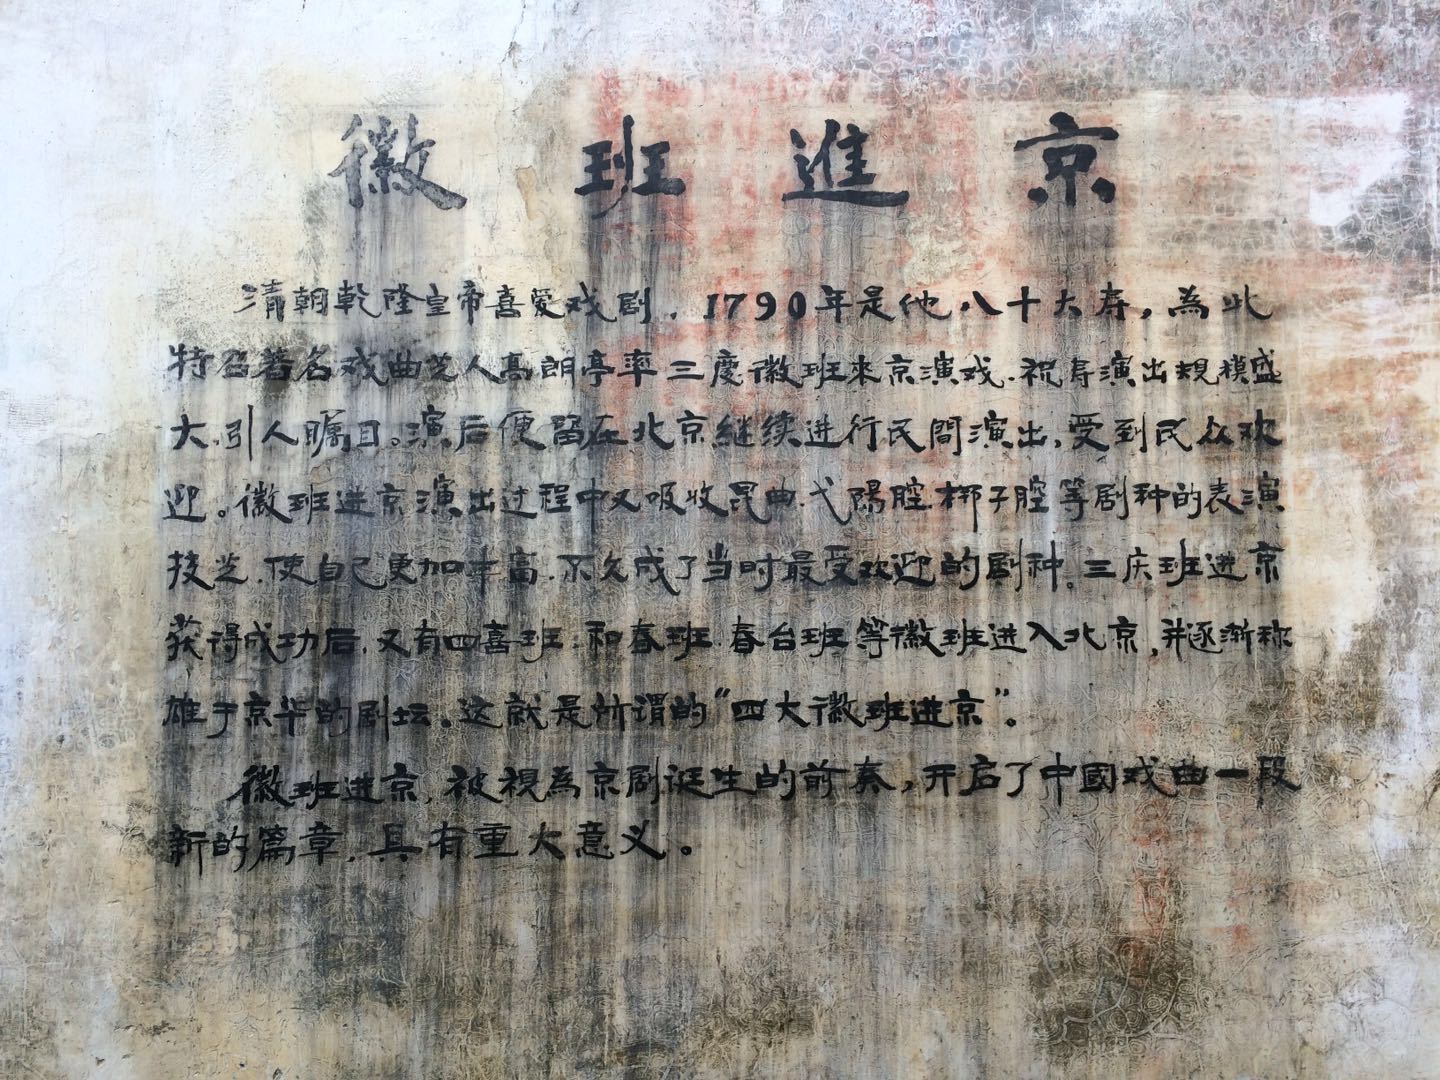 徽班進京
清朝乾隆皇帝喜愛戏剧，1790年是他八十大寿，為此
特召著名戏曲艺人高朗亭率三慶徽班來京演戏.祝寿演出規模盛
大.引人瞩目。演后便留在北京継续进行民間演出，受到民众欢
迎。徽班进京演出过程中又吸收昆曲.弋陽腔.梆子腔等剧种的表演
技艺.使自己更加丰富.不久成了当时最受欢迎的剧种。三庆班进京
获得成功后.又有四喜班.和春班.春台班等徽班进入北京，并逐渐称
雄于京华的剧坛。这就是所谓的“四大徽班进京”。
徽班进京，被視為京剧诞生的前奏，开启了中國戏曲一段
新的篇章.具有重大意义。